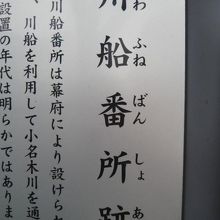 川船番所跡
わ ふね ばん しょ あ
川船番所は幕府により設けられ
、川船を利用して小名木川を通
設置の年代は明らかではありま